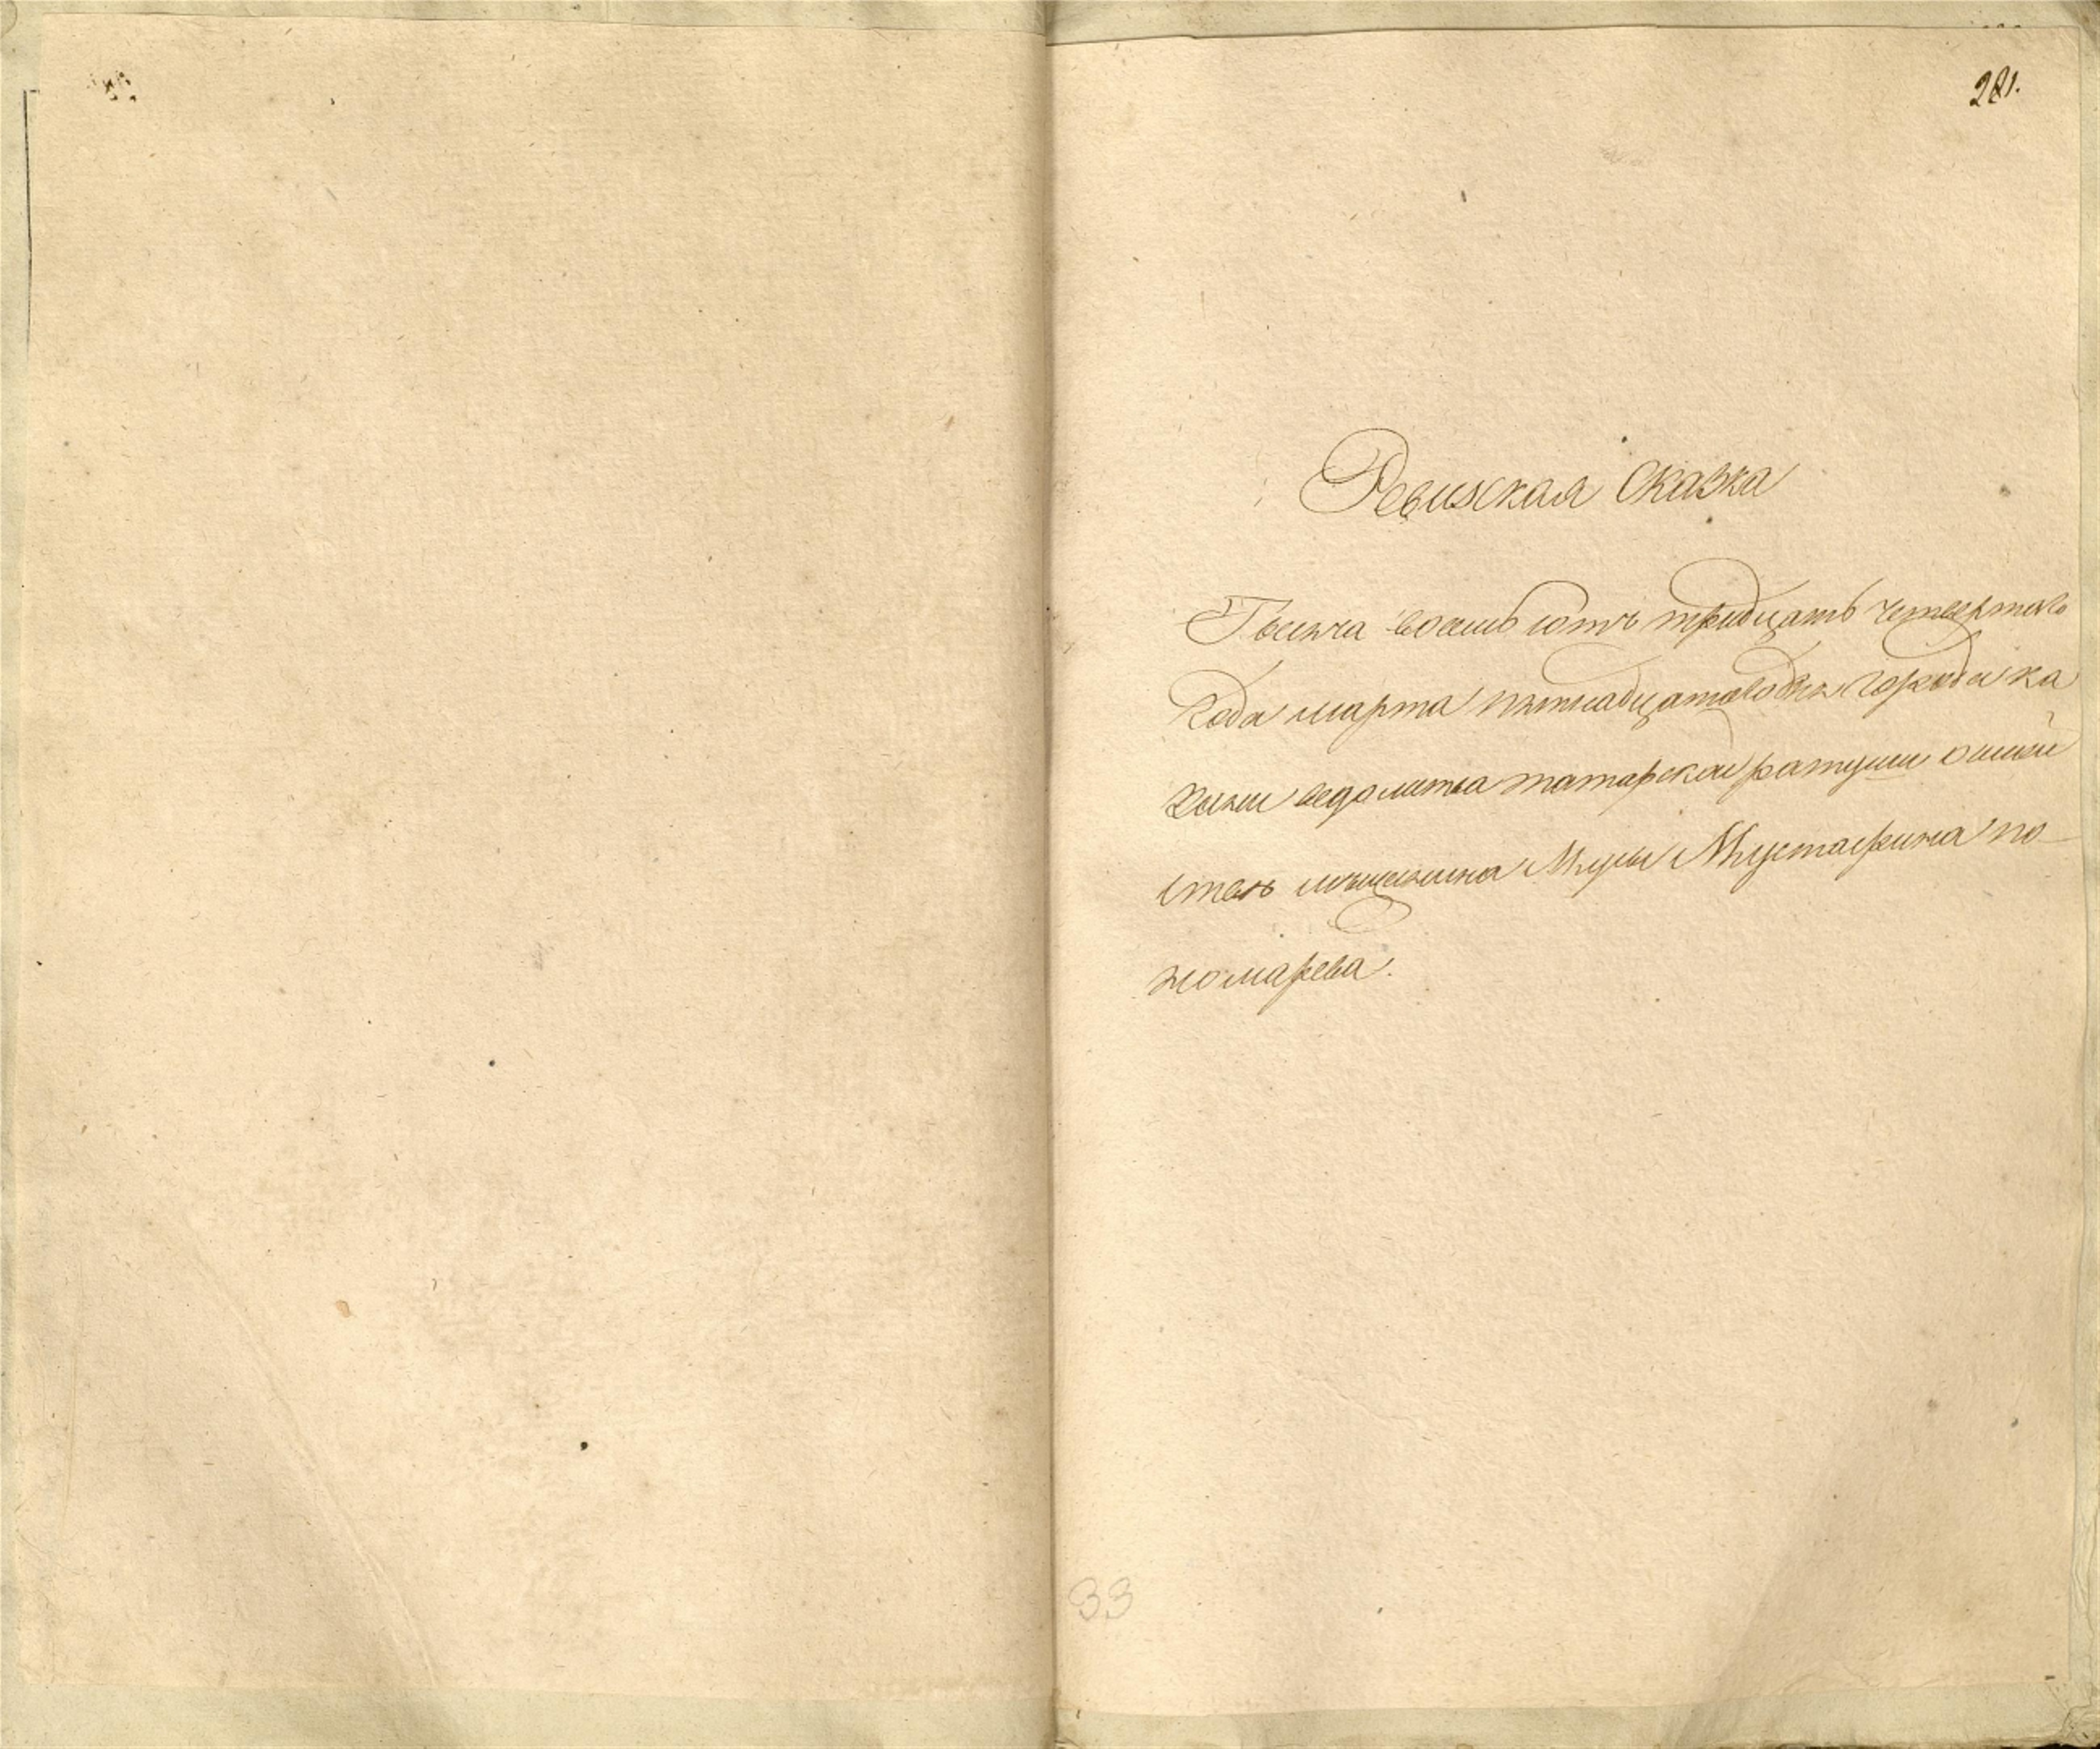 281.
Ревизская Сказка
Тысяча восемь сотъ тридцать четвертаго
года марта пятнадцатаго дня города Ка
зани ведомства татарской ратуши о
мещанина Мусы Мустафина по
номарева.
33